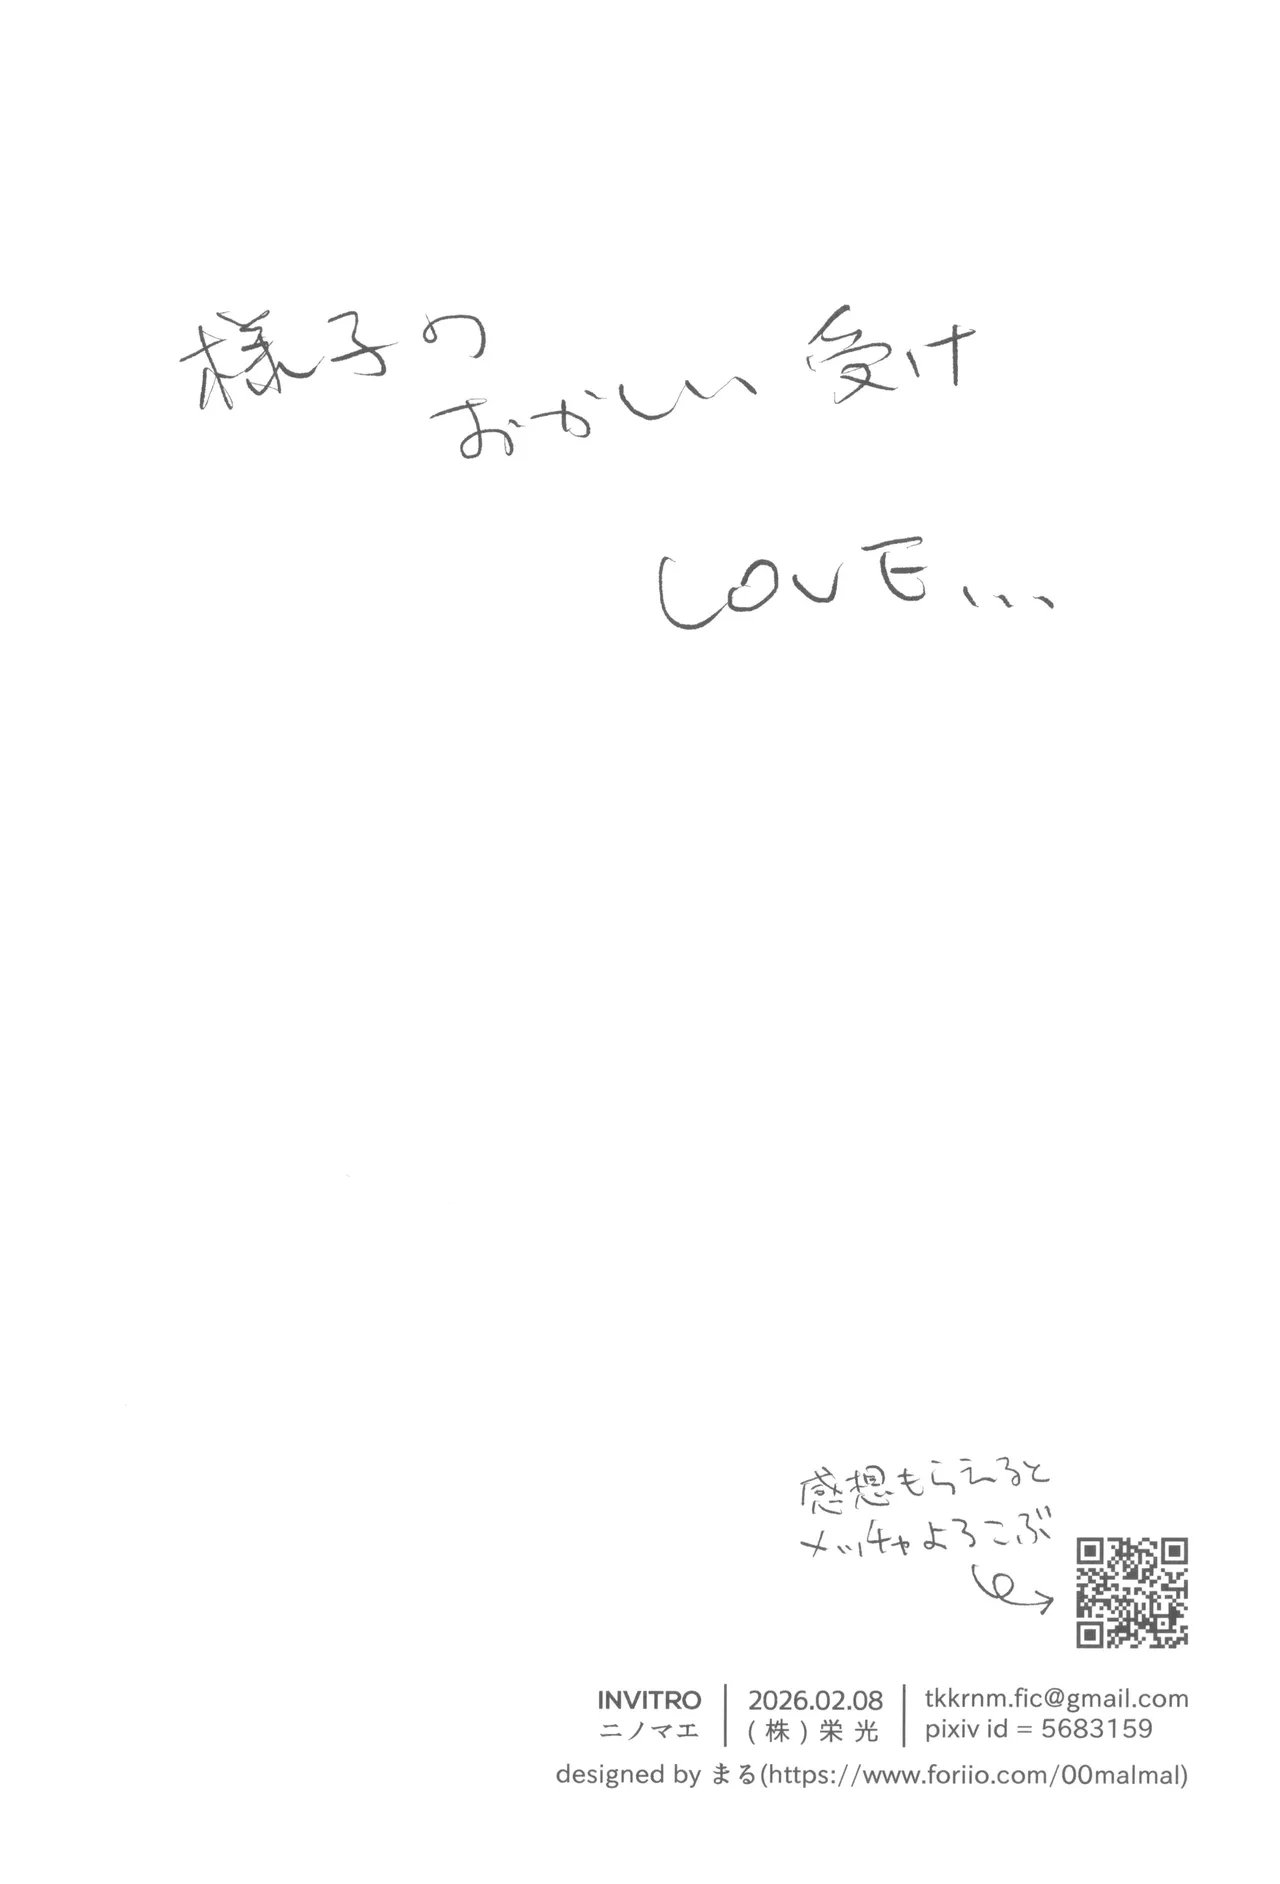 様子の
おかしい 受け
LOVE...
感想もらえると
メッチャよろこぶ
INVITRO
ニノマエ
2026.02.08
(株)栄光
tkkrnm.fic@gmail.com
pixiv id = 5683159
designed by まる(https://www.foriio.com/00malmal)